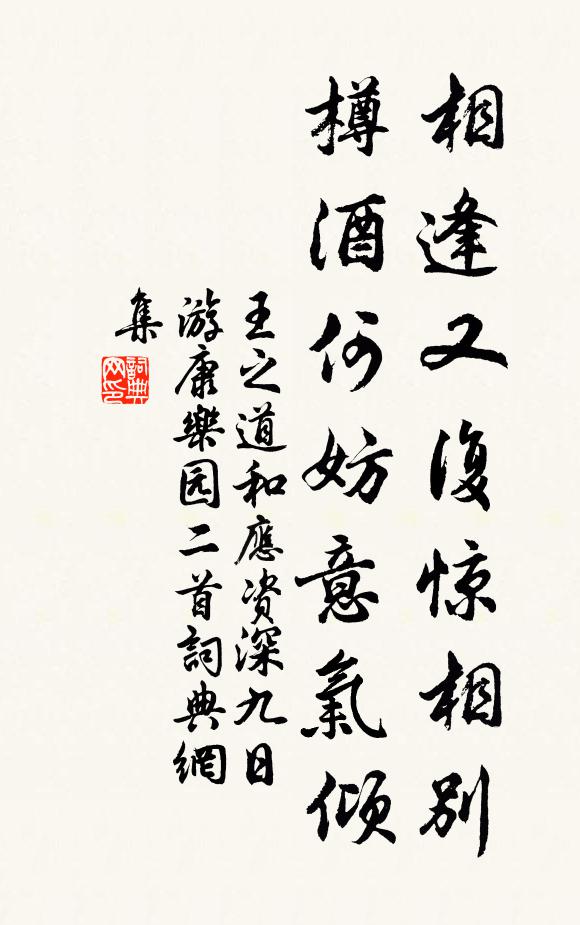 相逢又復惊相別
樽酒何妨意氣傾
王之道和應资深九日
游康樂园二首詞典網
集
詞典
网印